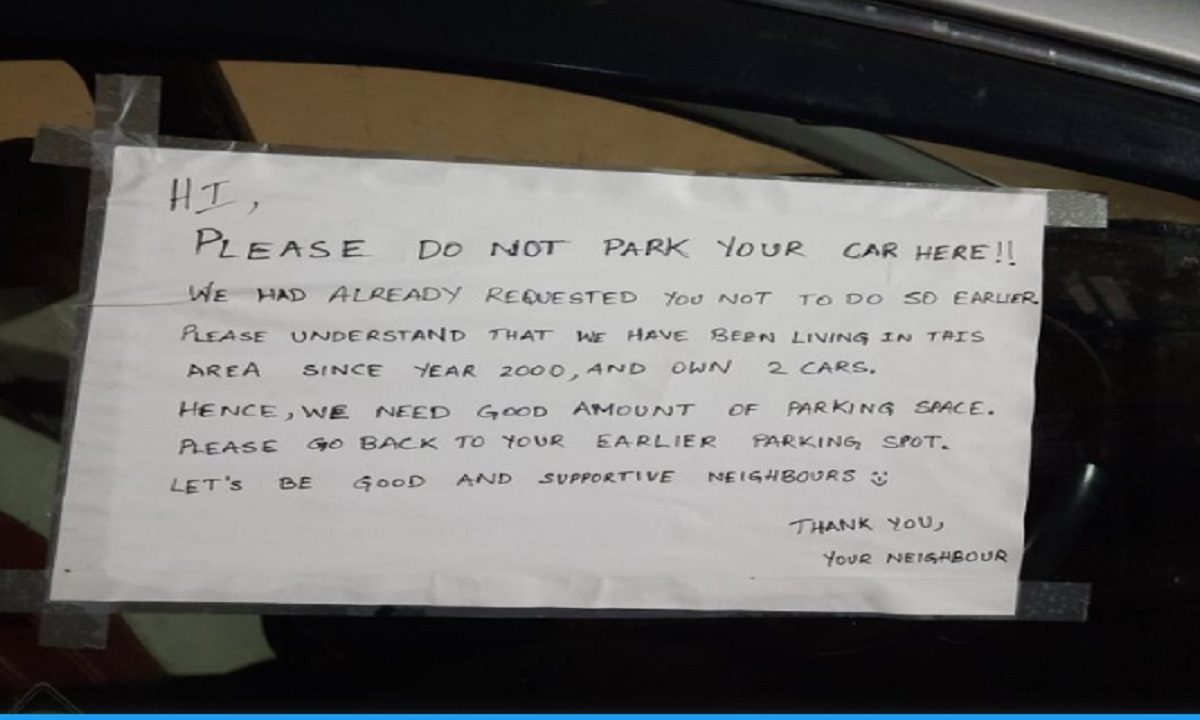 HI,
PLEASE DO NOT PARK YOUR CAR HERE!!
WE HAD ALREADY REQUESTED YOU NOT TO DO SO EARLIER.
PLEASE UNDERSTAND THAT WE HAVE BEEN LIVING IN THIS
AREA SINCE YEAR 2000, AND OWN 2 CARS.
HENCE, WE NEED GOOD AMOUNT OF PARKING SPACE.
PLEASE GO BACK TO YOUR EARLIER PARKING SPOT.
LET'S BE GOOD AND SUPPORTIVE NEIGHBOURS :)
THANK YOU,
YOUR NEIGHBOUR